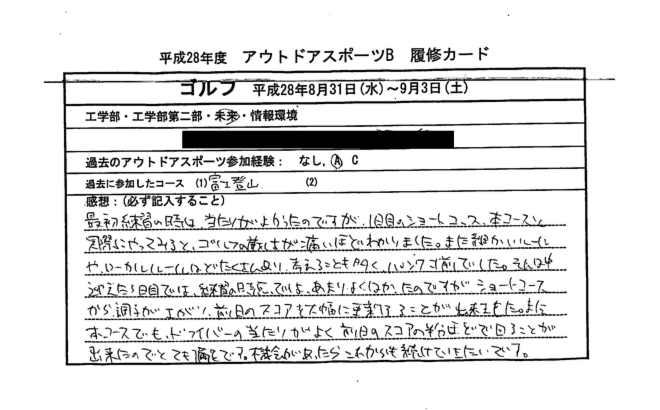 平成28年度 アウトドアスポーツB 履修カード
ゴルフ 平成28年8月31日(水)~9月3日(土)
工学部・工学部第二部・未来・情報環境
過去のアウトドアスポーツ参加経験: なし, A C
過去に参加したコース (1)富士登山 (2)
感想:(必ず記入すること)
最初練習の時は、当たりがよかったのですが、1日目のショートコース、本コースと
実際にやってみると、ゴルフの難しさが痛いほどわかりました。また細かいルール
や、ローカルルールなどたくさんあり、考えることも多く、パンク寸前でした。そんな中
迎えた3日目では、練習の時点では、あまりよくなかったのですがショートコース
から調子が上がり、前日のスコアを大幅に更新することが出来ました。また
本コースでも、ドライバーの当たりがよく前日のスコアの半分ほどで回ることが
出来たのでとても満足です。機会があったらこれからも続けていきたいです。